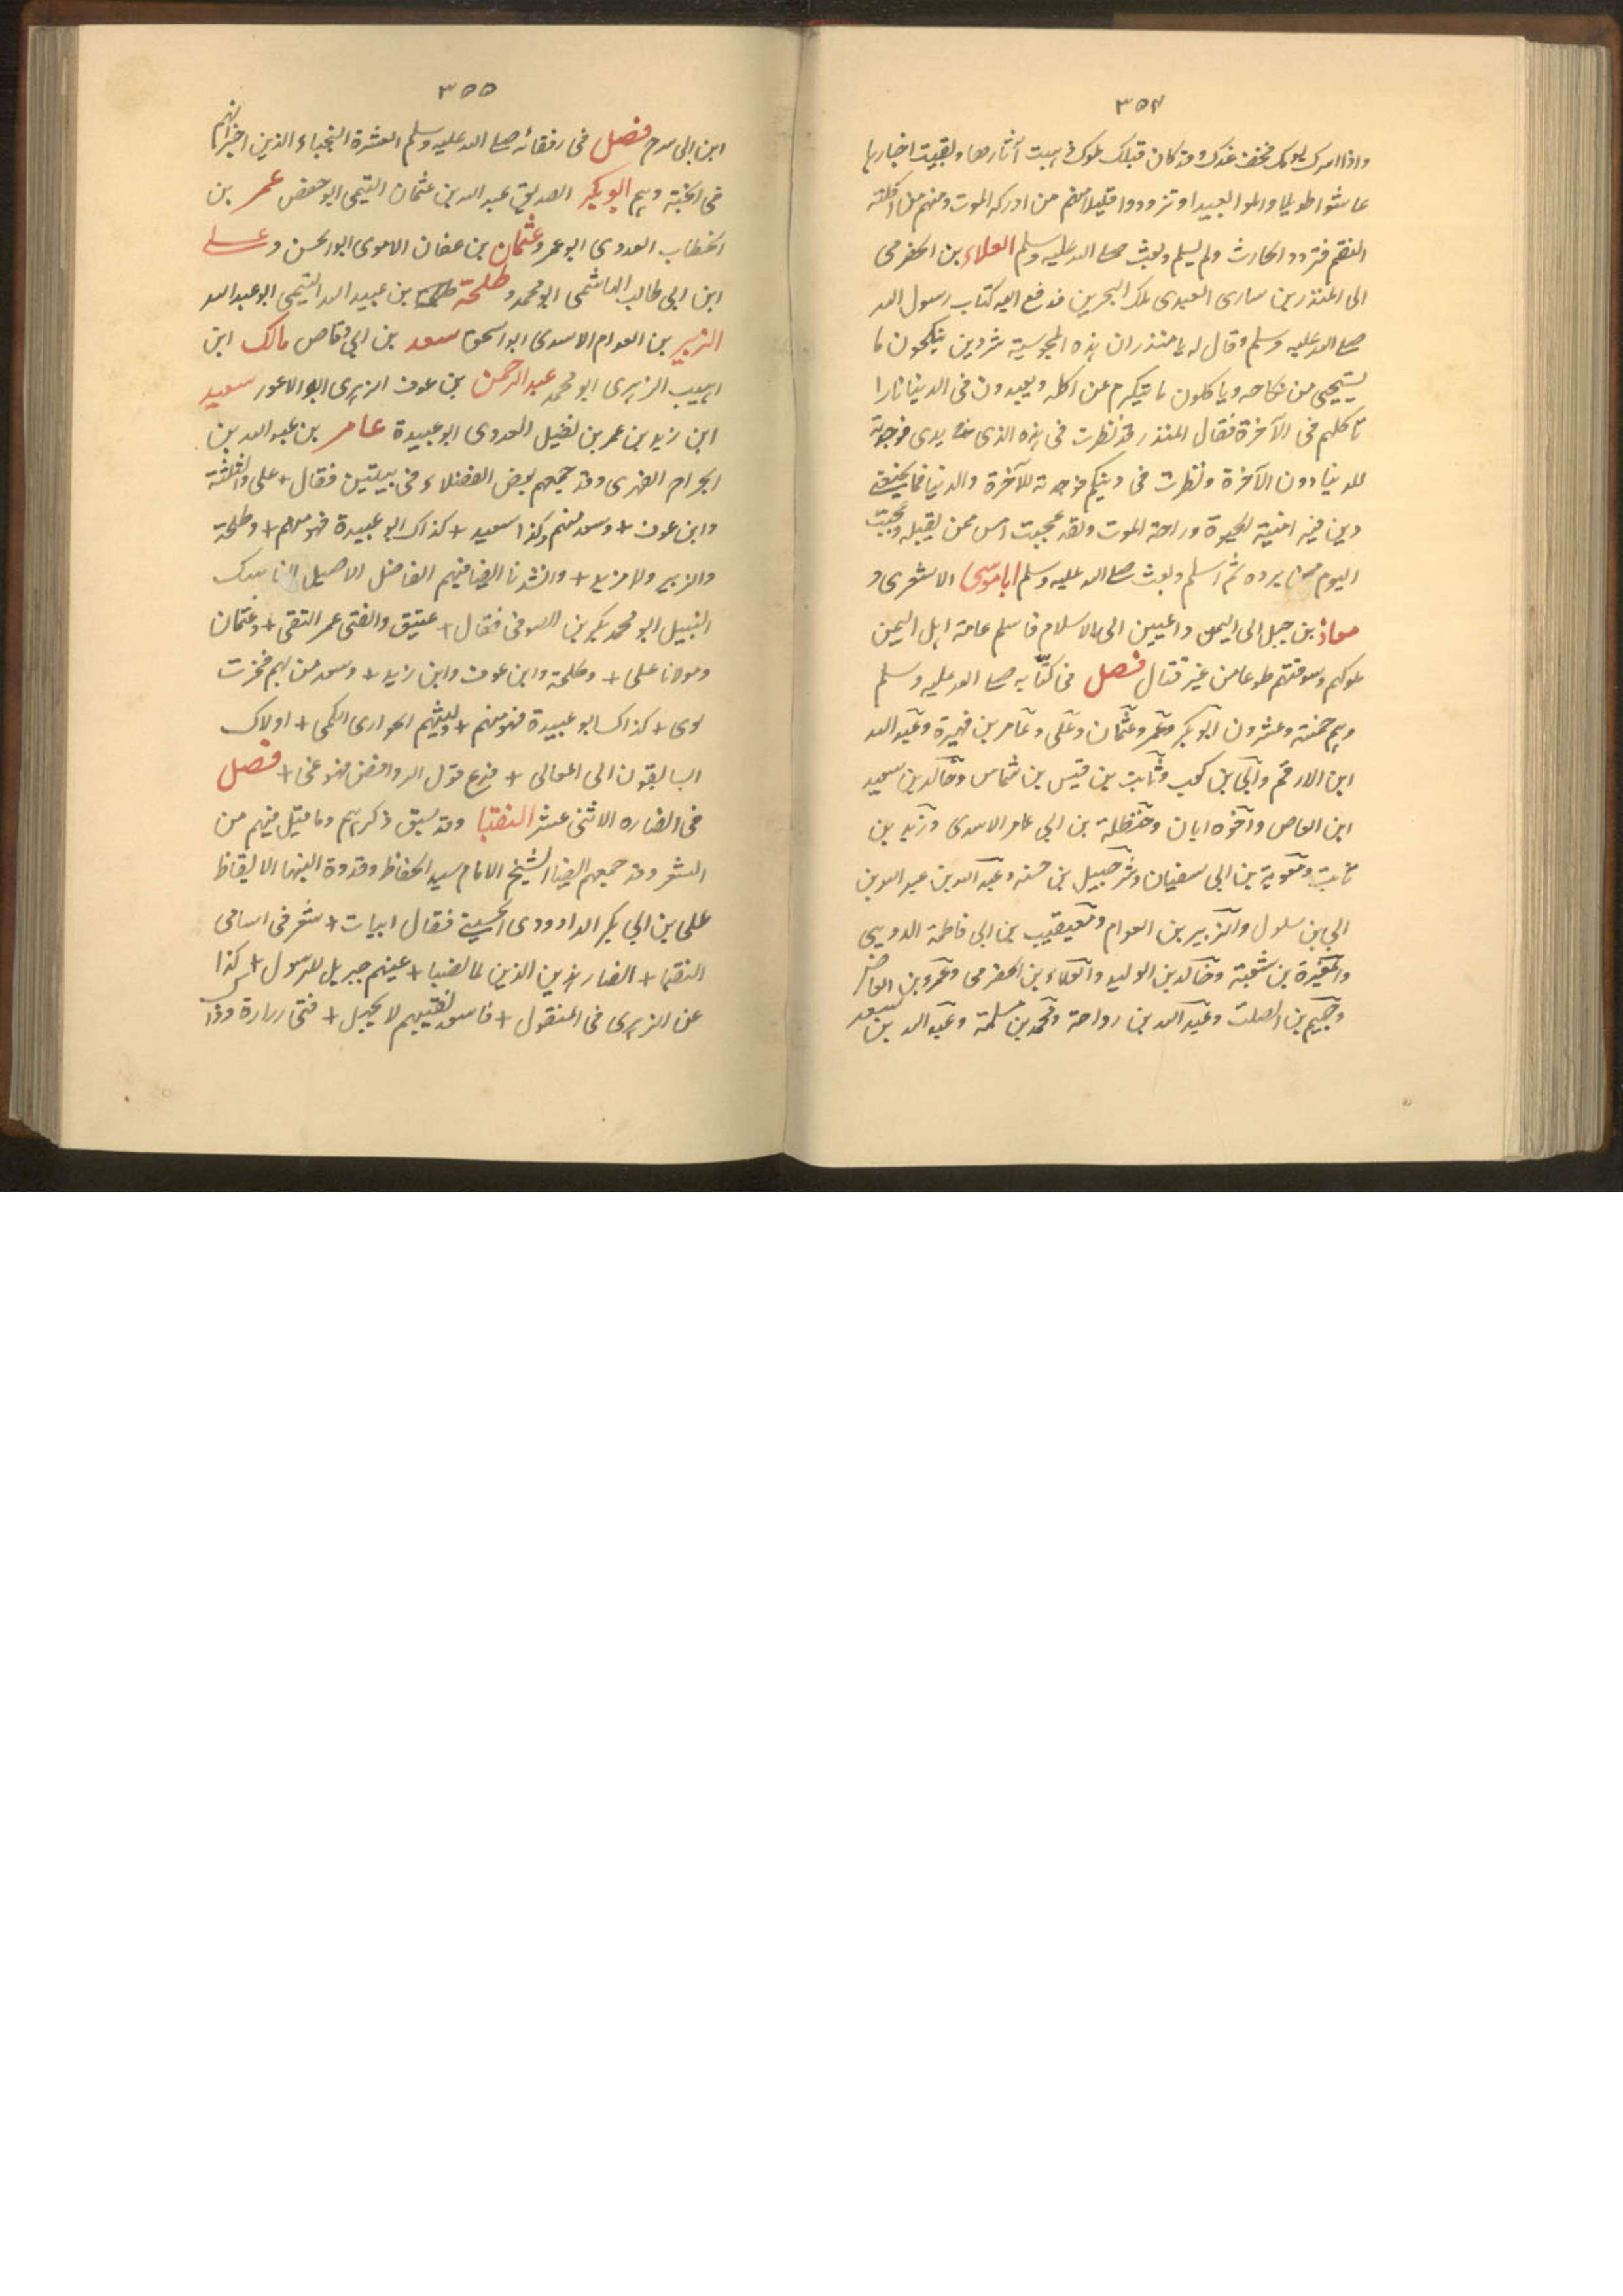 ٣٥٤
واذا سرك يومك فخف غدك وقد كان قبلك ملوك ذهبت آثارها وبقيت اخبارها
عاشوا طويلا واملوا بعيدا وتزودوا قليلا منهم من ادركه الموت ومنهم من اكلته
النقم فتردد الحارث ولم يسلم وبعث صلى الله عليه وسلم العلاء بن الحضرمى
الى المنذر بن ساوى العبدى ملك البحرين فدفع اليه كتاب رسول الله
صلى الله عليه وسلم وقال له يا منذر ان هذه المجوسية شر دين ينكحون ما
يستحيى من نكاحه وياكلون ما يتكرم عن اكله ويعبدون فى الدنيا نارا
تاكلهم فى الآخرة فقال المنذر قد نظرت فى هذه الذى يدى فوجدته
للدنيا دون الآخرة ونظرت فى دينكم فوجدته للآخرة والدنيا فما يمنعنى
دين فيه امنية الحيوة وراحة الموت ولقد عجبت امس ممن يقبله وعجبت
اليوم ممن يرده ثم اسلم وبعث صلى الله عليه وسلم ابا موسى الاشعرى و
معاذ بن جبل الى اليمن داعيين الى الاسلام فاسلم عامة اهل اليمن
ملوكهم وسوقتهم طوعا من غير قتال فصل فى كتّابه صلى الله عليه وسلم
وهم خمسة وعشرون ابو بكر وعمر وعثمان وعلى وعامر بن فهيرة وعبد الله
ابن الارقم وابى بن كعب وثابت بن قيس بن شماس وخالد بن سعيد
ابن العاص واخوه ابان وحنظلة بن ابى عامر الاسدى وزيد بن
ثابت ومعوية بن ابى سفيان وشرحبيل بن حسنه وعبد الله بن عبد الله بن
ابى بن سلول والزبير بن العوام ومعيقيب بن ابى فاطمة الدوسى
والمغيرة بن شعبة وخالد بن الوليد والعلاء بن الحضرمى وعمرو بن العاص
وجهيم بن الصلت وعبد الله بن رواحة ومحمد بن مسلمة وعبد الله بن سعد
٣٥٥
ابن ابى سرح فصل فى رفقائه صلى الله عليه وسلم العشرة النجباء الذين اخبر انهم
فى الجنة وهم ابو بكر الصديق عبد الله بن عثمان التيمى ابو حفص عمر بن
الخطاب العدوى ابو عمرو عثمان بن عفان الاموى ابو الحسن وعلى
ابن ابى طالب الهاشمى ابو محمد و طلحة بن عبيد الله التيمى ابو عبد الله
الزبير بن العوام الاسدى ابو اسحق سعد بن ابى وقاص مالك ابن
اهيب الزهرى ابو محمد عبد الرحمن بن عوف الزهرى ابو الاعور سعيد
ابن زيد بن عمر بن نفيل العدوى ابو عبيدة عامر بن عبد الله بن
الجراح الفهرى وقد جمعهم بعض الفضلاء فى بيتين فقال + على والثلثة
وابن عوف + وسعد منهم وكذا سعيد + كذاك ابو عبيدة فهو منهم + وطلحة
والزبير ولا مزيد + وانشدنا ايضا فيهم الفاضل الاصيل الناسك
النبيل ابو محمد بكر بن الصوفى فقال + عتيق والفتى عمر التقى + وعثمان
ومولانا على + وطلحة وابن عوف وابن زيد + وسعد من بهم فخرت
لوى + كذاك ابو عبيدة فهو منهم + وليثهم الحوارى الكمى + اولاك
السابقون الى المعالى + فدع قول الروافض فهو غى + فصل
فى انصاره الاثنى عشر النقبا وقد سبق ذكرهم وما قيل فيهم من
الشعر وقد جمعهم ايضا الشيخ الامام سيد الحفاظ وقدوة النبهاء الايقاظ
على بن ابى بكر الداوودى الحسينى فقال ابيات + شعر فى اسامى
النقبا + انصار الذين لما نصبا + عينهم جبريل للرسول + كذا
عن الزهرى فى المنقول + فاسعد نقيبهم لا يجهل + فتى زرارة وذا